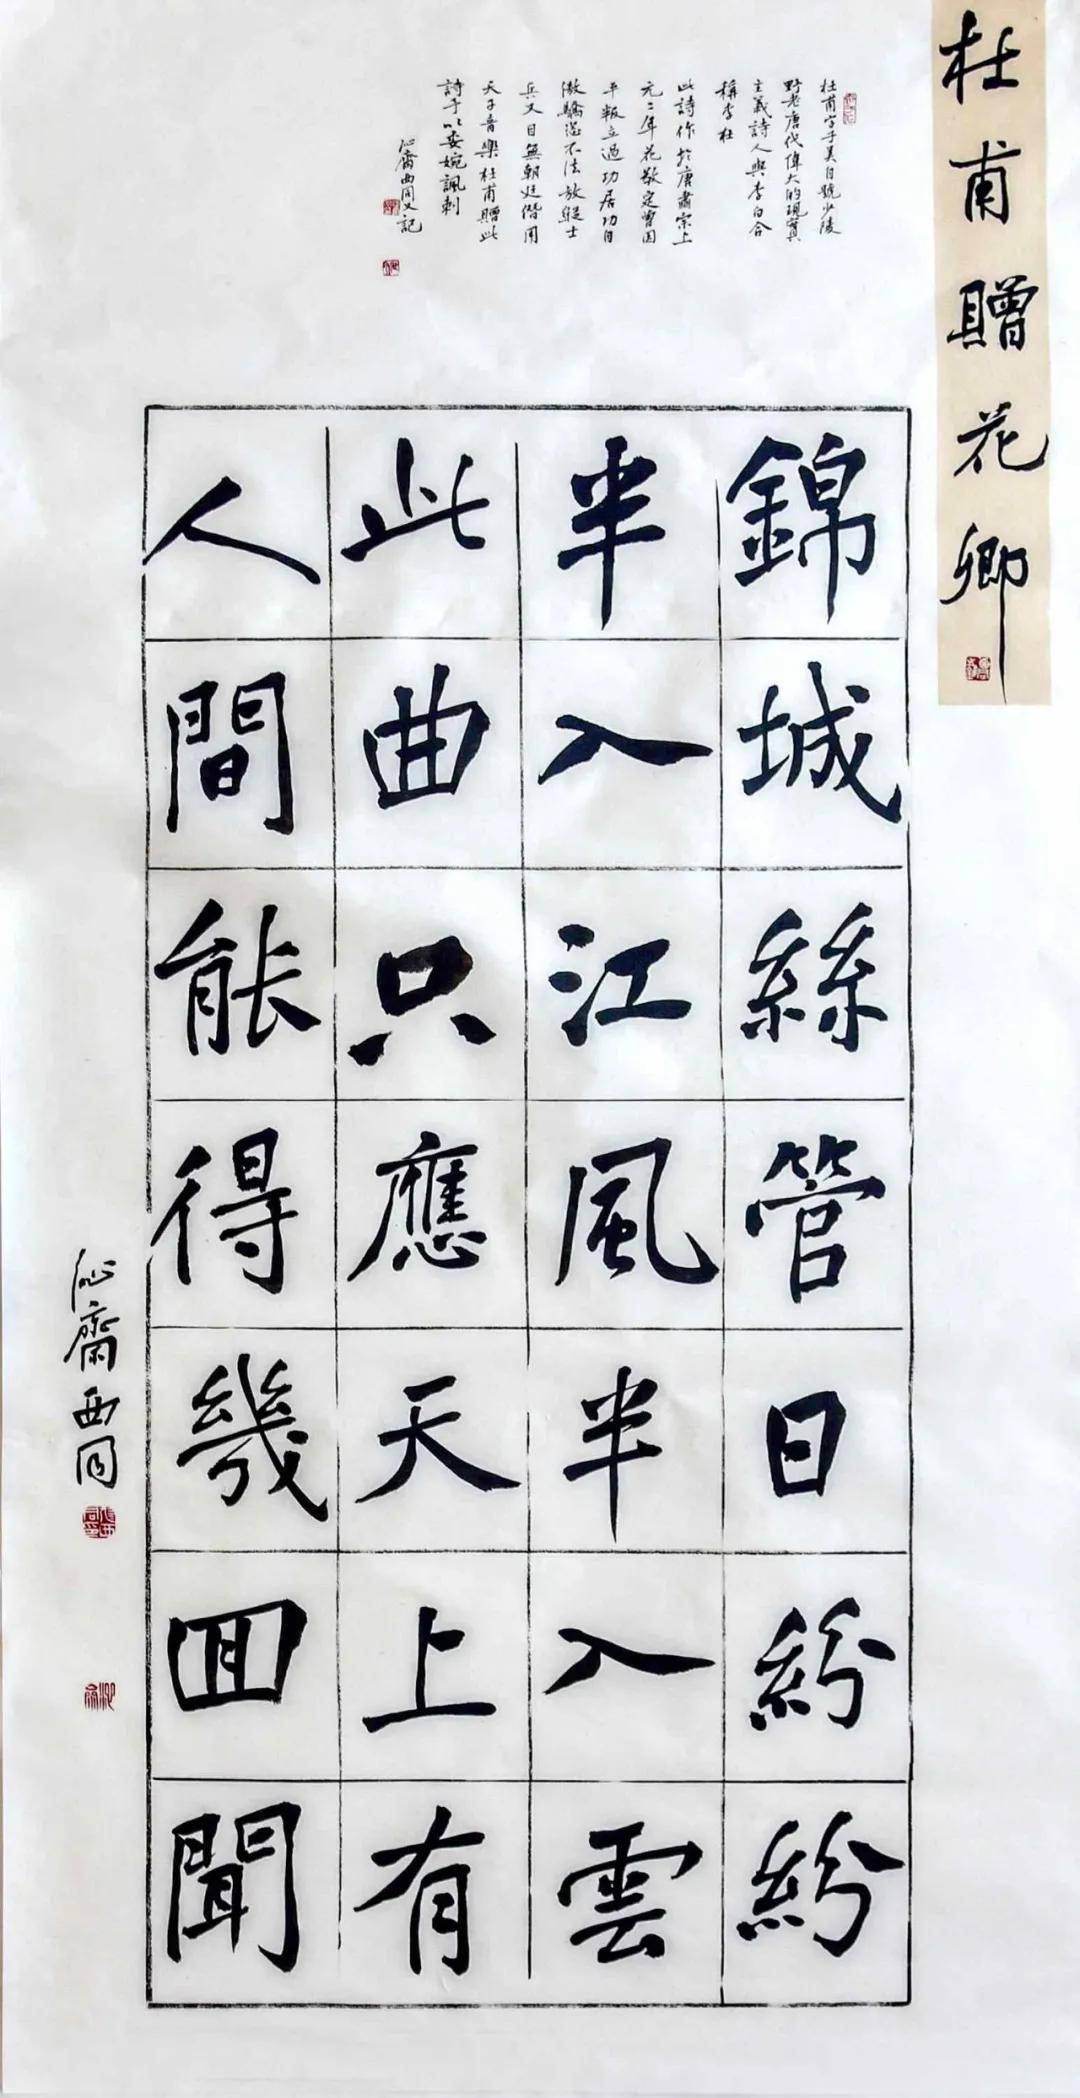 杜甫贈花卿
杜甫字子美自號少陵
野老唐代偉大的現實
主義詩人與李白合
稱李杜
此詩作於唐肅宗上
元二年花敬定曾因
平叛立過功居功自
傲驕恣不法放縱士
兵又目無朝廷僭用
天子音樂杜甫贈此
詩予以委婉諷刺
沁齋西同又記
錦城絲管日紛紛
半入江風半入雲
此曲只應天上有
人間能得幾回聞
沁齋西同